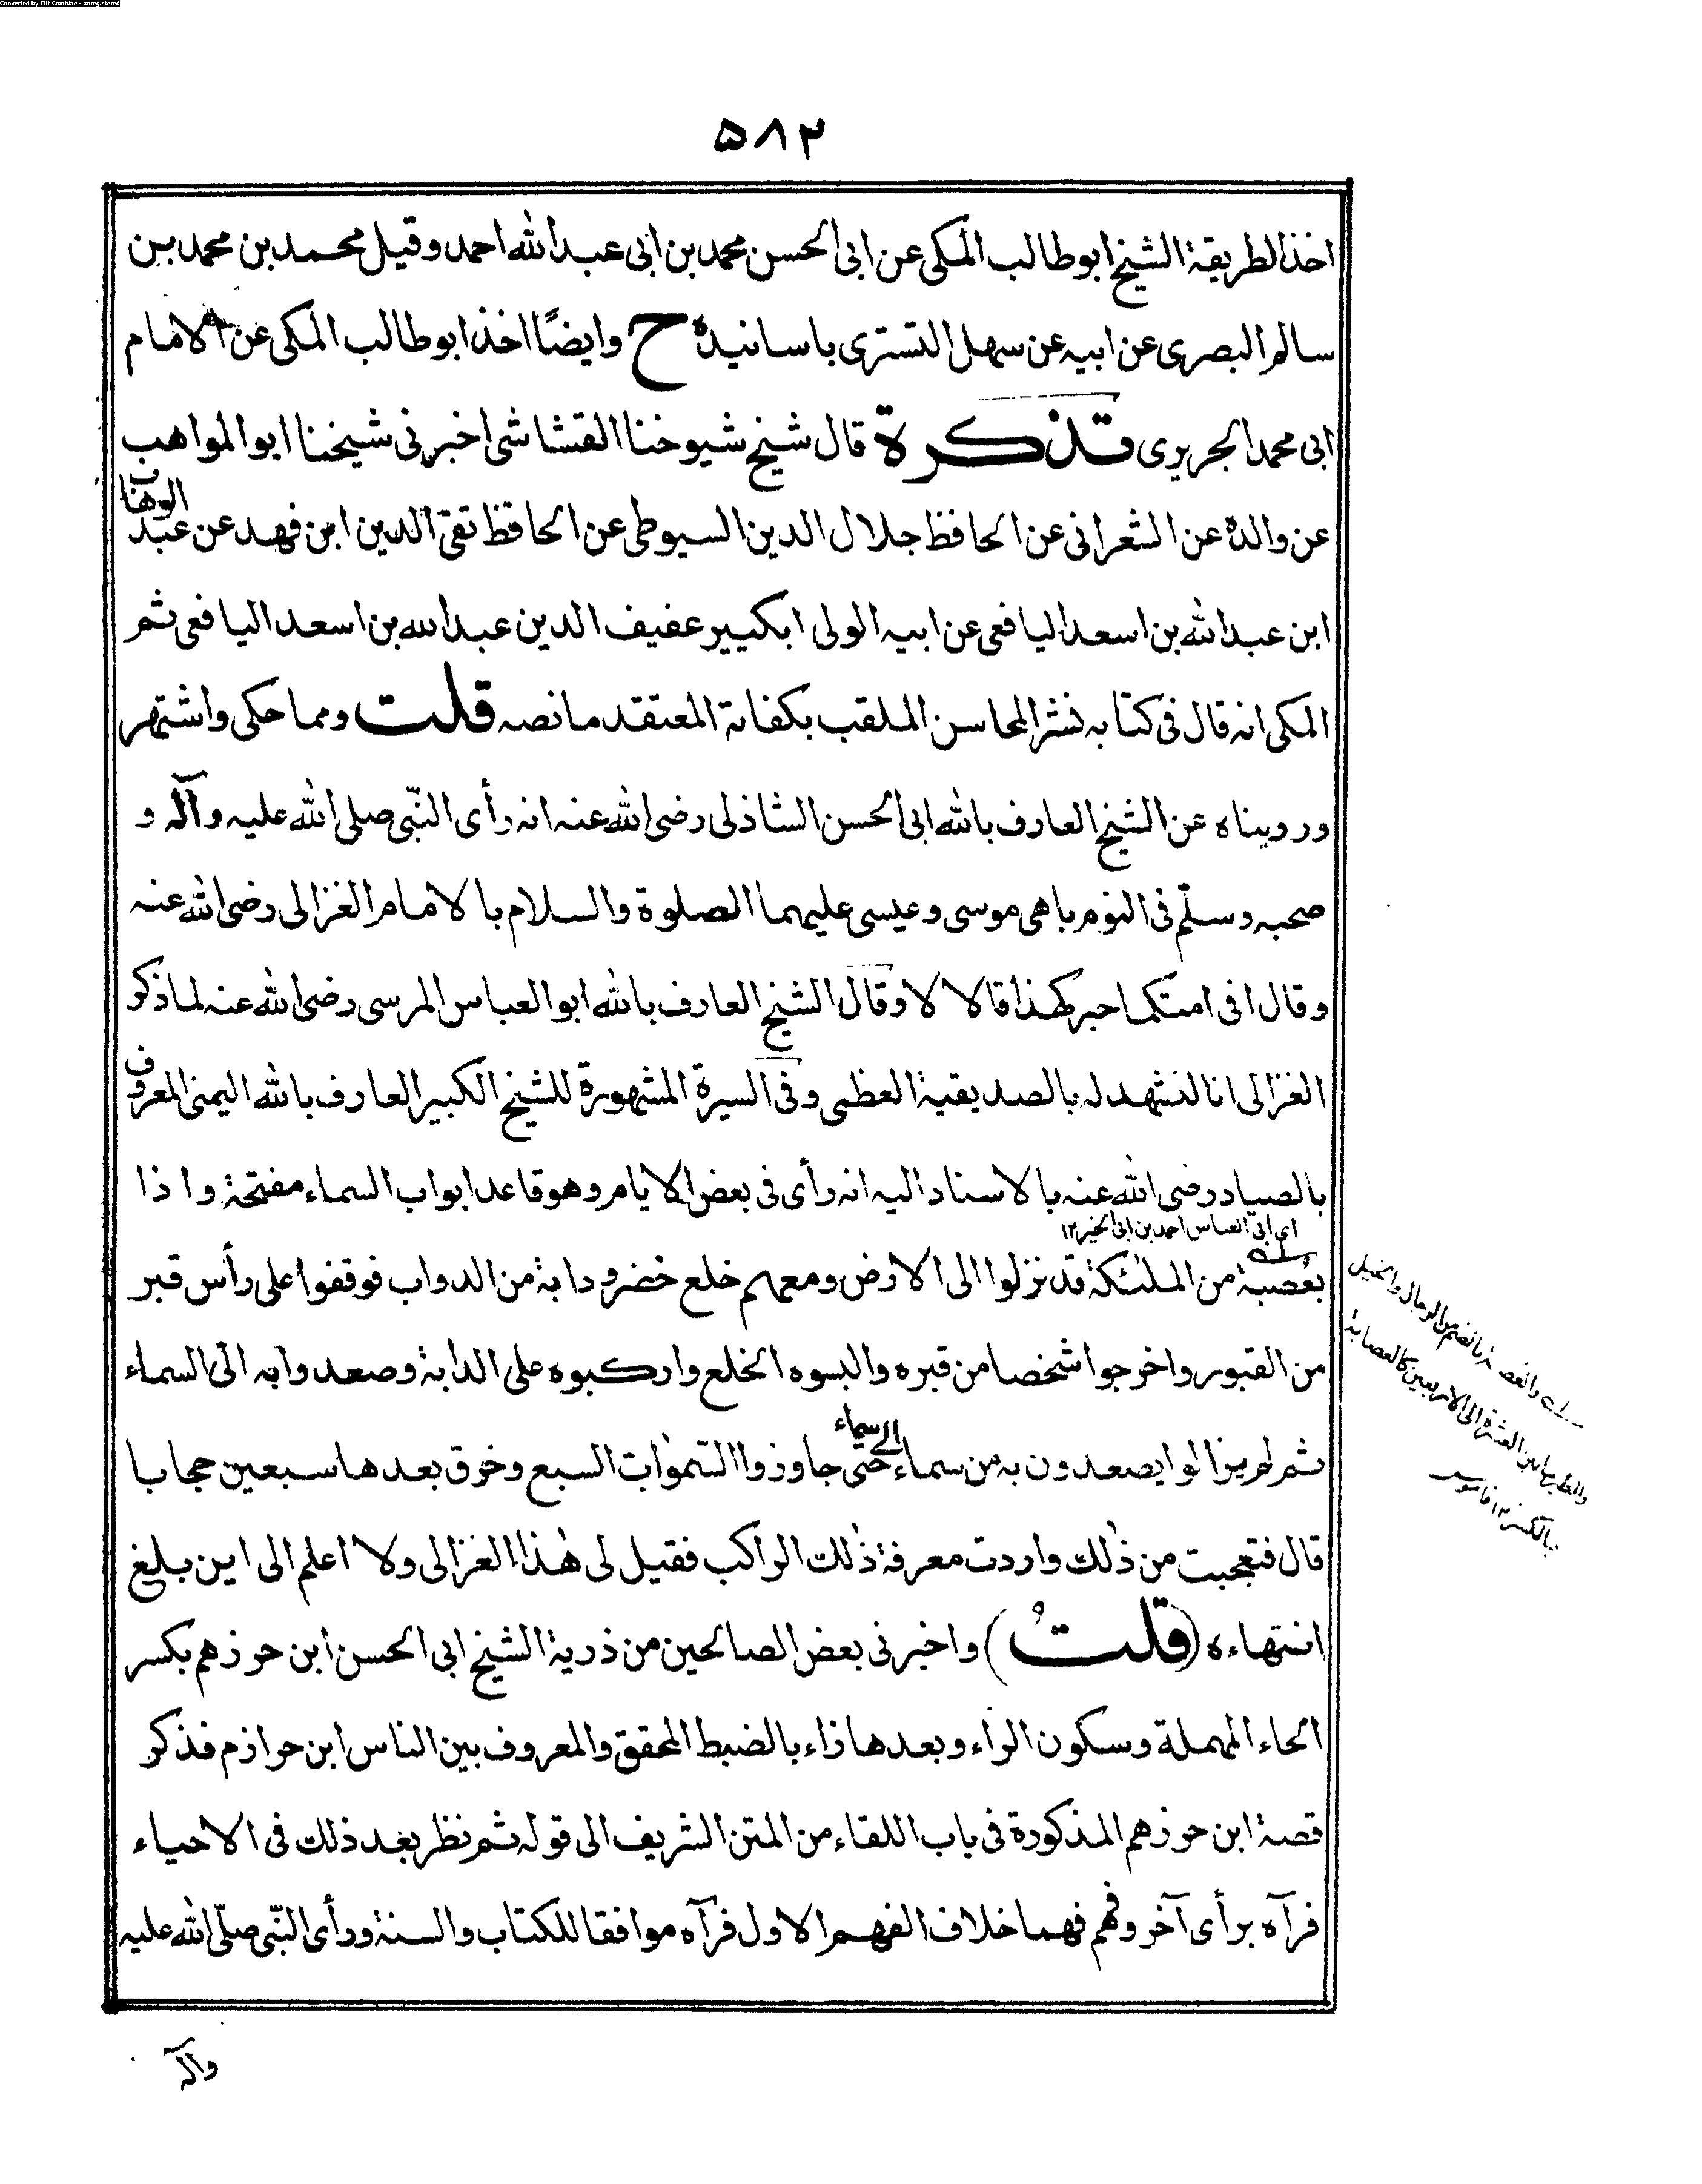 Converted by Tiff Combine - unregistered
۵۸۲
اخذ الطريقة الشيخ ابو طالب المكى عن ابى الحسن محمد بن ابى عبد الله احمد وقيل محمد بن محمد بن
سالم البصرى عن ابيه عن سهل التسترى باسانيده ح وايضًا اخذ ابو طالب المكى عن الامام
ابى محمد الجريرى تذكرة قال شيخ شيوخنا القشاشى اخبرنى شيخنا ابو المواهب
عن والده عن الشعرانى عن الحافظ جلال الدين السيوطى عن الحافظ تقى الدين ابن فهد عن عبد الوهاب
ابن عبد الله بن اسعد اليافعى عن ابيه الولى الكبير عفيف الدين عبد الله بن اسعد اليافعى ثم
المكى انه قال فى كتابه نشر المحاسن الملقب بكفاية المعتقد ما نصه قلت ومما حكى واشتهر
ورويناه عن الشيخ العارف بالله ابى الحسن الشاذلى رضى الله عنه انه رأى النبّى صلى الله عليه وآله و
صحبه وسلّم فى النوم باهى موسى وعيسى عليهما الصلوة والسلام بالامام الغزالى رضى الله عنه
وقال افى امتكما حبر كهذا قالا لا وقال الشيخ العارف بالله ابو العباس المرسى رضى الله عنه لما ذكر
الغزالى انا لنشهد له بالصديقية العظمى وفى السيرة المشهورة للشيخ الكبير العارف بالله اليمنى المعروف
بالصياد رضى الله عنه بالاسناد اليه انه رأى فى بعض الايام وهو قاعد ابواب السماء مفتحة واذا
اى ابى العباس احمد بن ابى الخير ١٢
بعُصبة من الملئكة قد نزلوا الى الارض ومعهم خلع خضر ودابة من الدواب فوقفوا على رأس قبر
من القبور واخرجوا شخصا من قبره والبسوه الخلع واركبوه على الدابة وصعدوا به الى السماء
ثم لم يزالوا يصعدون به من سماء الى سماء حتى جاوزوا السّموٰات السبع وخرق بعدها سبعين حجابا
قال فتعجبت من ذٰلك واردت معرفة ذٰلك الراكب فقيل لى هٰذا الغزالى ولا اعلم الى اين بلغ
انتهاءه (قلتُ) واخبرنى بعض الصالحين من ذرية الشيخ ابى الحسن ابن حرزهم بكسر
الحاء المهملة وسكون الراء وبعدها زاء بالضبط المحقق والمعروف بين الناس ابن حرازم فذكر
قصة ابن حرزهم المذكورة فى باب اللقاء من المتن الشريف الى قوله ثم نظر بعد ذلك فى الاحياء
فرآه برأى آخر وفهم فهما خلاف الفهم الاول فرآه موافقا للكتاب والسنة ورأى النبّى صلّى الله عليه
والعصبة بالضم من الرجال والخيل
والطير ما بين العشرة الى الاربعين كالعصابة
بالكسر ١٢ قاموس
وآله